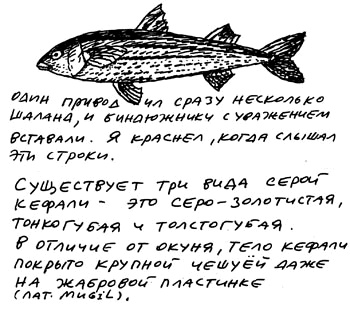 один привод ил сразу несколько
шаланд, и биндюжники с уважением
вставали. Я краснел, когда слышал
эти строки.
Существует три вида серой
кефали - это серо-золотистая,
тонкогубая и толстогубая.
В отличие от окуня, тело кефали
покрыто крупной чешуёй даже
на жабровой пластинке
(лат. mugil).